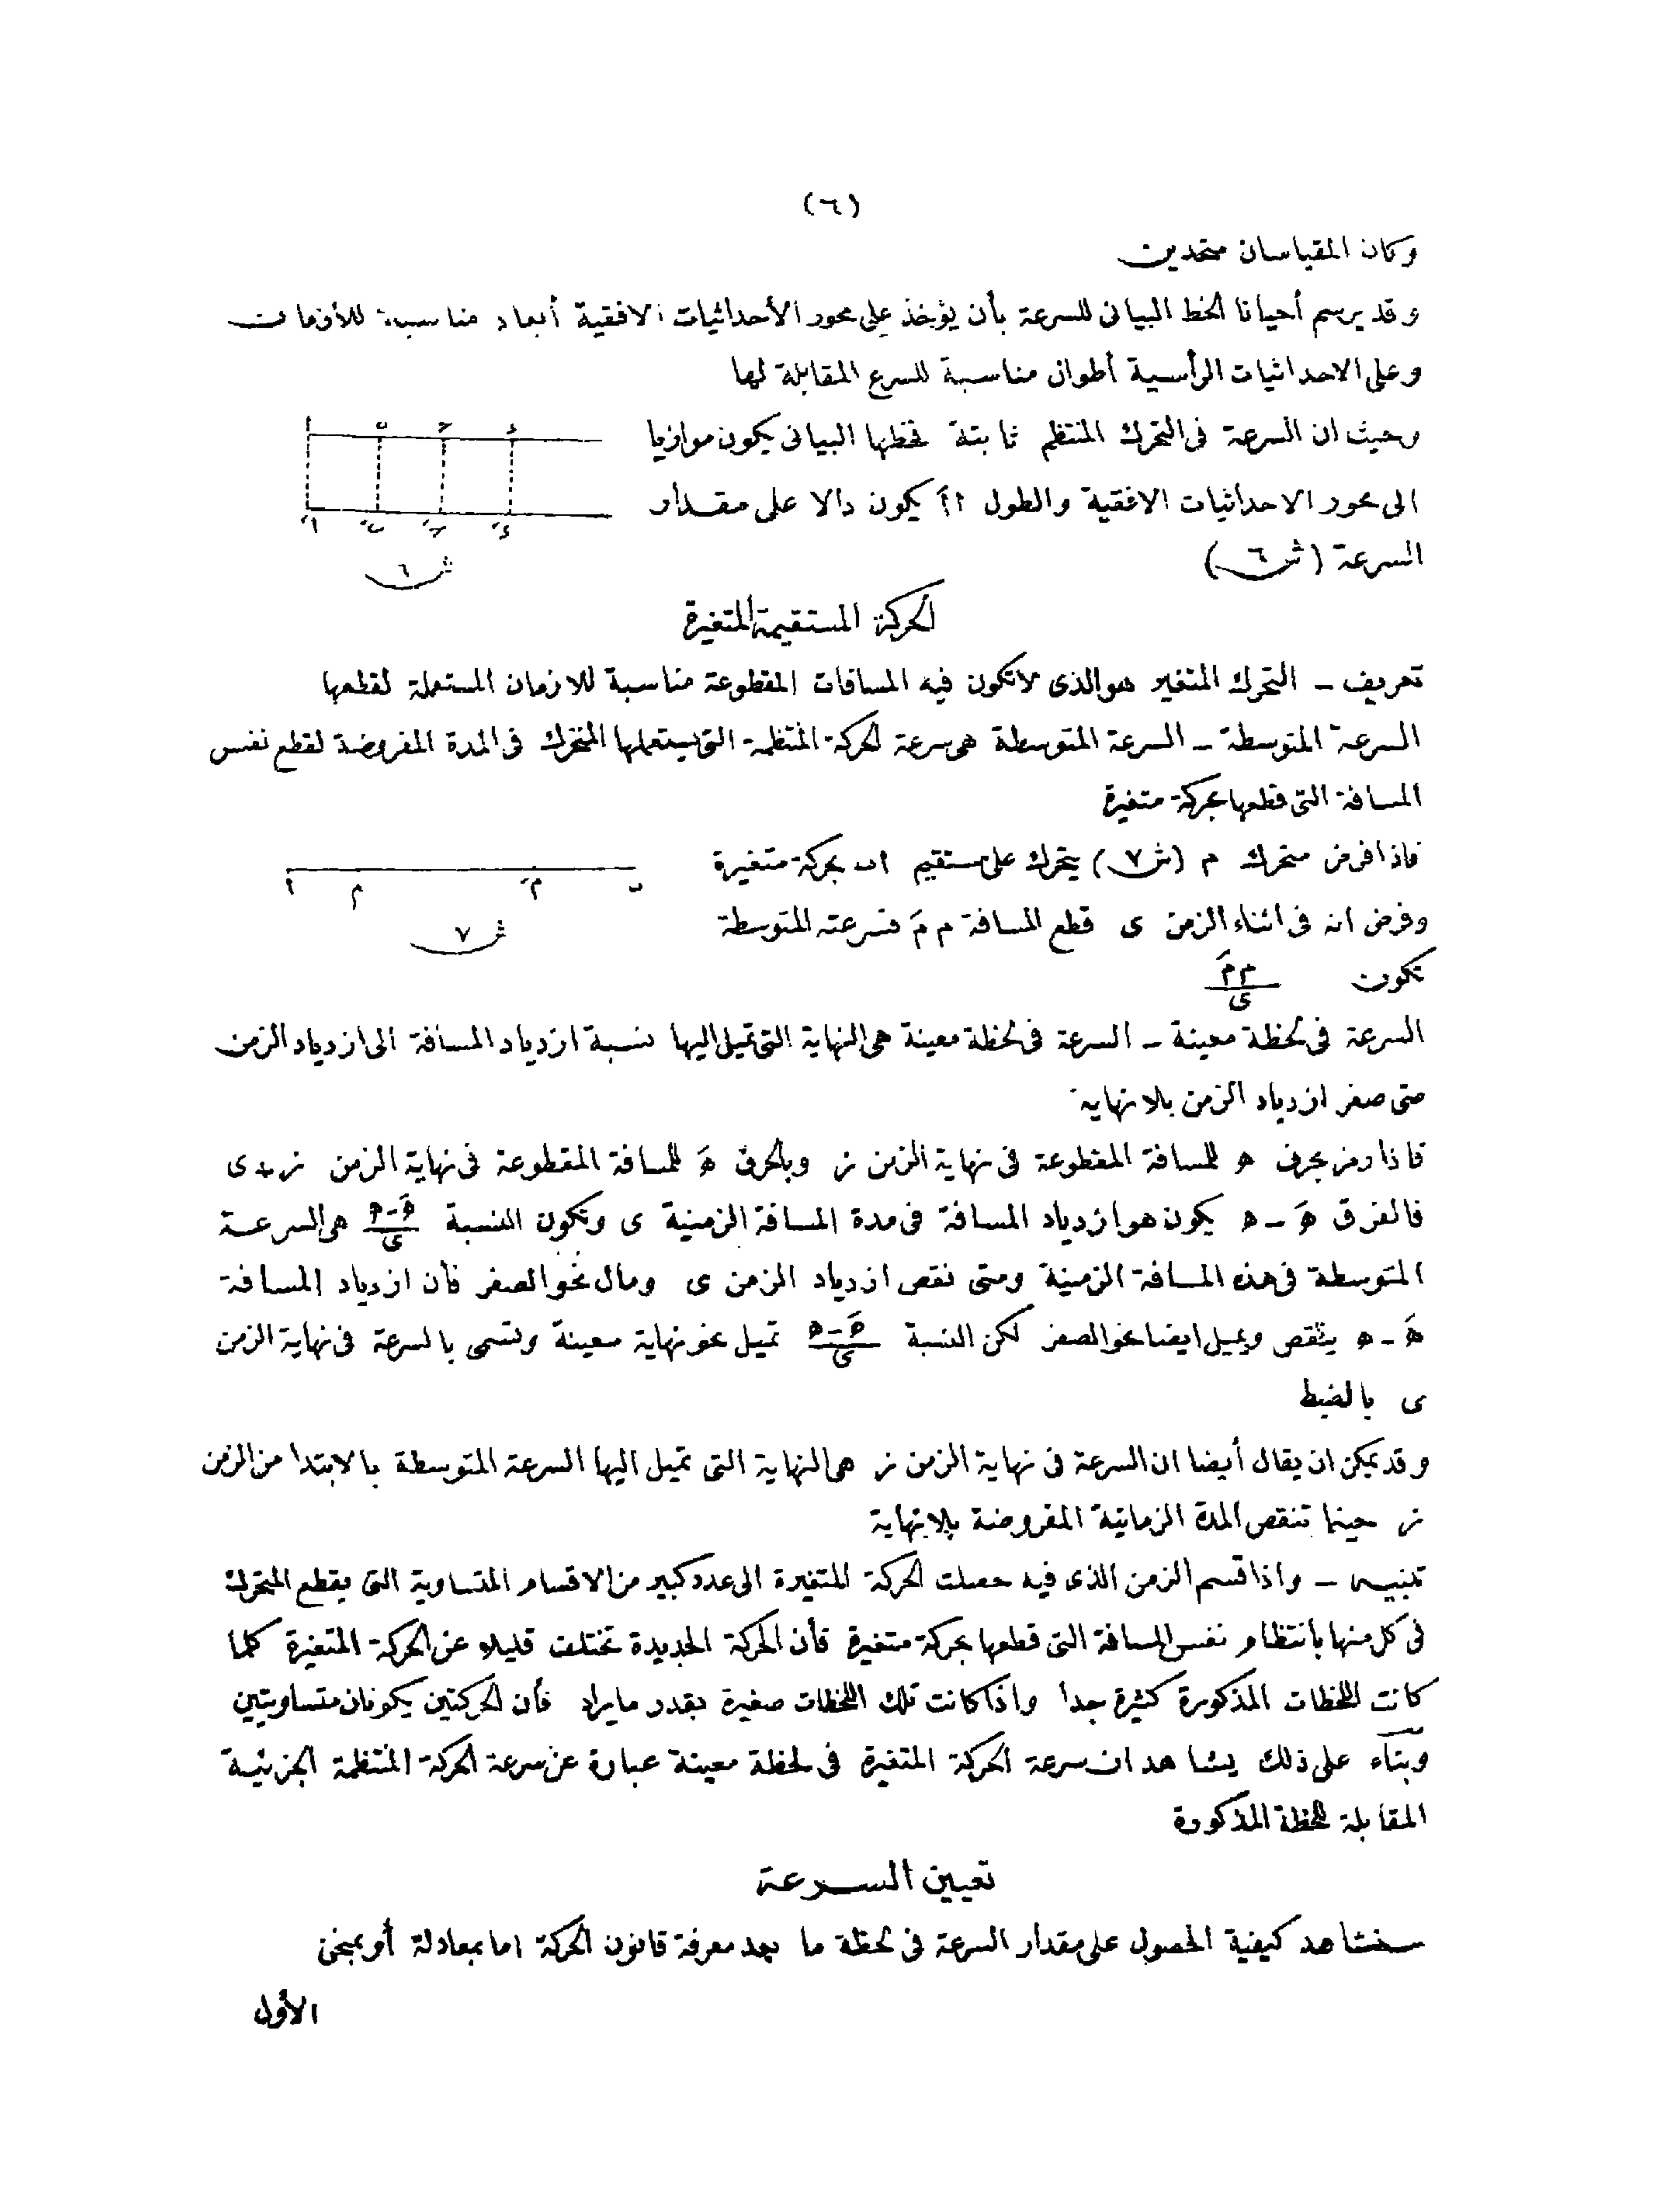 (٦)
وكان المقياسان متحدين
وقد يرسم أحيانا الخط البيانى للسرعة بأن يؤخذ على محور الأحداثيات الافقية أبعاد مناسبة للأزمات
وعلى الاحداثيات الرأسية أطوال مناسبة للسرع المقابلة لها
وحيث ان السرعة فى التحرك المنتظم ثابتة فخطها البيانى يكون موازيا
الى محور الاحداثيات الافقية والطول اأَ يكون دالا على مقدار
السرعة (ش ٦)
ا ب ح د
اَ بَ حَ دَ
ش ٦
الحركة المستقيمة المتغيرة
تعريف – التحرك المتغير هو الذى لاتكون فيه المسافات المقطوعة مناسبة للازمان المستعملة لقطعها
السرعة المتوسطة – السرعة المتوسطة هى سرعة الحركة المنتظمة التى يستعملها المتحرك فى المدة المفروضة لقطع نفس
المسافة التى قطعها بحركة متغيرة
فاذا فرض متحرك م (ش ٧) يتحرك على مستقيم اب بحركة متغيرة
وفرض انه فى اثناء الزمن ى قطع المسافة م مَ فسرعته المتوسطة
ا م مَ ب
ش ٧
تكون م مَ / ى
السرعة فى لحظة معينة – السرعة فى لحظة معينة هى النهاية التى تميل اليها نسبة ازدياد المسافة الى ازدياد الزمن
متى صفر ازدياد الزمن بلا نهاية
فاذا رمز بحرف ه للمسافة المقطوعة فى نهاية الزمن ز وبالحرف هَ للمسافة المقطوعة فى نهاية الزمن ز + ى
فالفرق هَ – ه يكون هو ازدياد المسافة فى مدة المسافة الزمنية ى وتكون النسبة هَ-ه / ى هى السرعة
المتوسطة فى هذه المسافة الزمنية ومتى نقص ازدياد الزمن ى ومال نحو الصفر فأن ازدياد المسافة
هَ - ه ينقص ويميل ايضا نحو الصفر لكن النسبة هَ-ه / ى تميل نحو نهاية معينة وتسمى بالسرعة فى نهاية الزمن
ى بالضبط
وقد يمكن ان يقال أيضا ان السرعة فى نهاية الزمن ز هى النهاية التى تميل اليها السرعة المتوسطة بالابتدا من الزمن
ز حينما تنقص المدة الزمانية المفروضة بلا نهاية
تنبيه – واذا قسم الزمن الذى فيه حصلت الحركة المتغيرة الى عدد كبير من الاقسام المتساوية التى يقطع المتحرك
فى كل منها بأنتظام نفس المسافة التى قطعها بحركة متغيرة فأن الحركة الجديدة تختلف قليلا عن الحركة المتغيرة كلما
كانت اللحظات المذكورة كثيرة جدا واذا كانت تلك اللحظات صغيرة بقدر مايراد فأن الحركتين يكونان متساويتين
وبناء على ذلك يشاهد ان سرعة الحركة المتغيرة فى لحظة معينة عبارة عن سرعة الحركة المنتظمة الجزئية
المقابلة للحظة المذكورة
تعيين السرعة
سنشاهد كيفية الحصول على مقدار السرعة فى لحظة ما بعد معرفة قانون الحركة اما بمعادلة أو بمنحنى
الأول